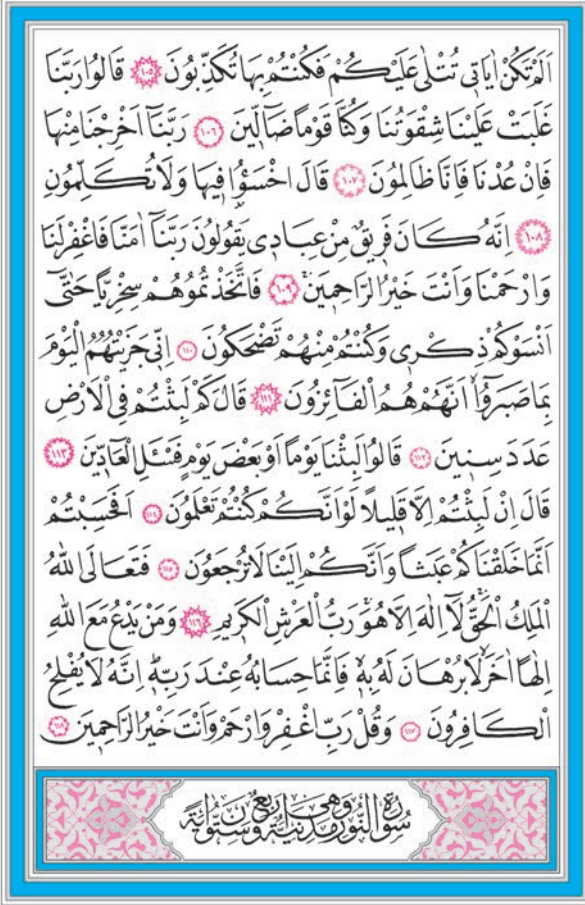 اَلَمْ تَكُنْ اٰيَاتٖي تُتْلٰى عَلَيْكُمْ فَكُنْتُمْ بِهَا تُكَذِّبُونَ ﴿١٠٥﴾ قَالُوا رَبَّنَا
غَلَبَتْ عَلَيْنَا شِقْوَتُنَا وَكُنَّا قَوْمًا ضَٓالّٖينَ ﴿١٠٦﴾ رَبَّنَٓا اَخْرِجْنَا مِنْهَا
فَاِنْ عُدْنَا فَاِنَّا ظَالِمُونَ ﴿١٠٧﴾ قَالَ اخْسَؤُ۫ا فٖيهَا وَلَا تُكَلِّمُونِ
﴿١٠٨﴾ اِنَّهُ كَانَ فَرٖيقٌ مِنْ عِبَادٖي يَقُولُونَ رَبَّنَٓا اٰمَنَّا فَاغْفِرْ لَنَا
وَارْحَمْنَا وَاَنْتَ خَيْرُ الرَّاحِمٖينَۚ ﴿١٠٩﴾ فَاتَّخَذْتُمُوهُمْ سِخْرِيًّا حَتّٰٓى
اَنْسَوْكُمْ ذِكْرٖي وَكُنْتُمْ مِنْهُمْ تَضْحَكُونَ ﴿١١٠﴾ اِنّٖي جَزَيْتُهُمُ الْيَوْمَ
بِمَا صَبَرُٓواۙ اَنَّهُمْ هُمُ الْفَٓائِزُونَ ﴿١١١﴾ قَالَ كَمْ لَبِثْتُمْ فِي الْاَرْضِ
عَدَدَ سِنٖينَ ﴿١١٢﴾ قَالُوا لَبِثْنَا يَوْمًا اَوْ بَعْضَ يَوْمٍ فَسْـَٔلِ الْعَٓادّٖينَ ﴿١١٣﴾
قَالَ اِنْ لَبِثْتُمْ اِلَّا قَلٖيلًا لَوْ اَنَّكُمْ كُنْتُمْ تَعْلَمُونَ ﴿١١٤﴾ اَفَحَسِبْتُمْ
اَنَّمَا خَلَقْنَاكُمْ عَبَثًا وَاَنَّكُمْ اِلَيْنَا لَا تُرْجَعُونَ ﴿١١٥﴾ فَتَعَالَى اللّٰهُ
الْمَلِكُ الْحَقُّۚ لَٓا اِلٰهَ اِلَّا هُوَۚ رَبُّ الْعَرْشِ الْكَرٖيمِ ﴿١١٦﴾ وَمَنْ يَدْعُ مَعَ اللّٰهِ
اِلٰهًا اٰخَرَۙ لَا بُرْهَانَ لَهُ بِهٖۙ فَاِنَّمَا حِسَابُهُ عِنْدَ رَبِّهٖؕ اِنَّهُ لَا يُفْلِحُ
الْكَافِرُونَ ﴿١١٧﴾ وَقُلْ رَبِّ اغْفِرْ وَارْحَمْ وَاَنْتَ خَيْرُ الرَّاحِمٖينَ ﴿١١٨﴾
سُورَةُ النُّورِ مَدَنِيَّةٌ وَهِيَ اَرْبَعٌ وَسِتُّونَ اٰيَةً